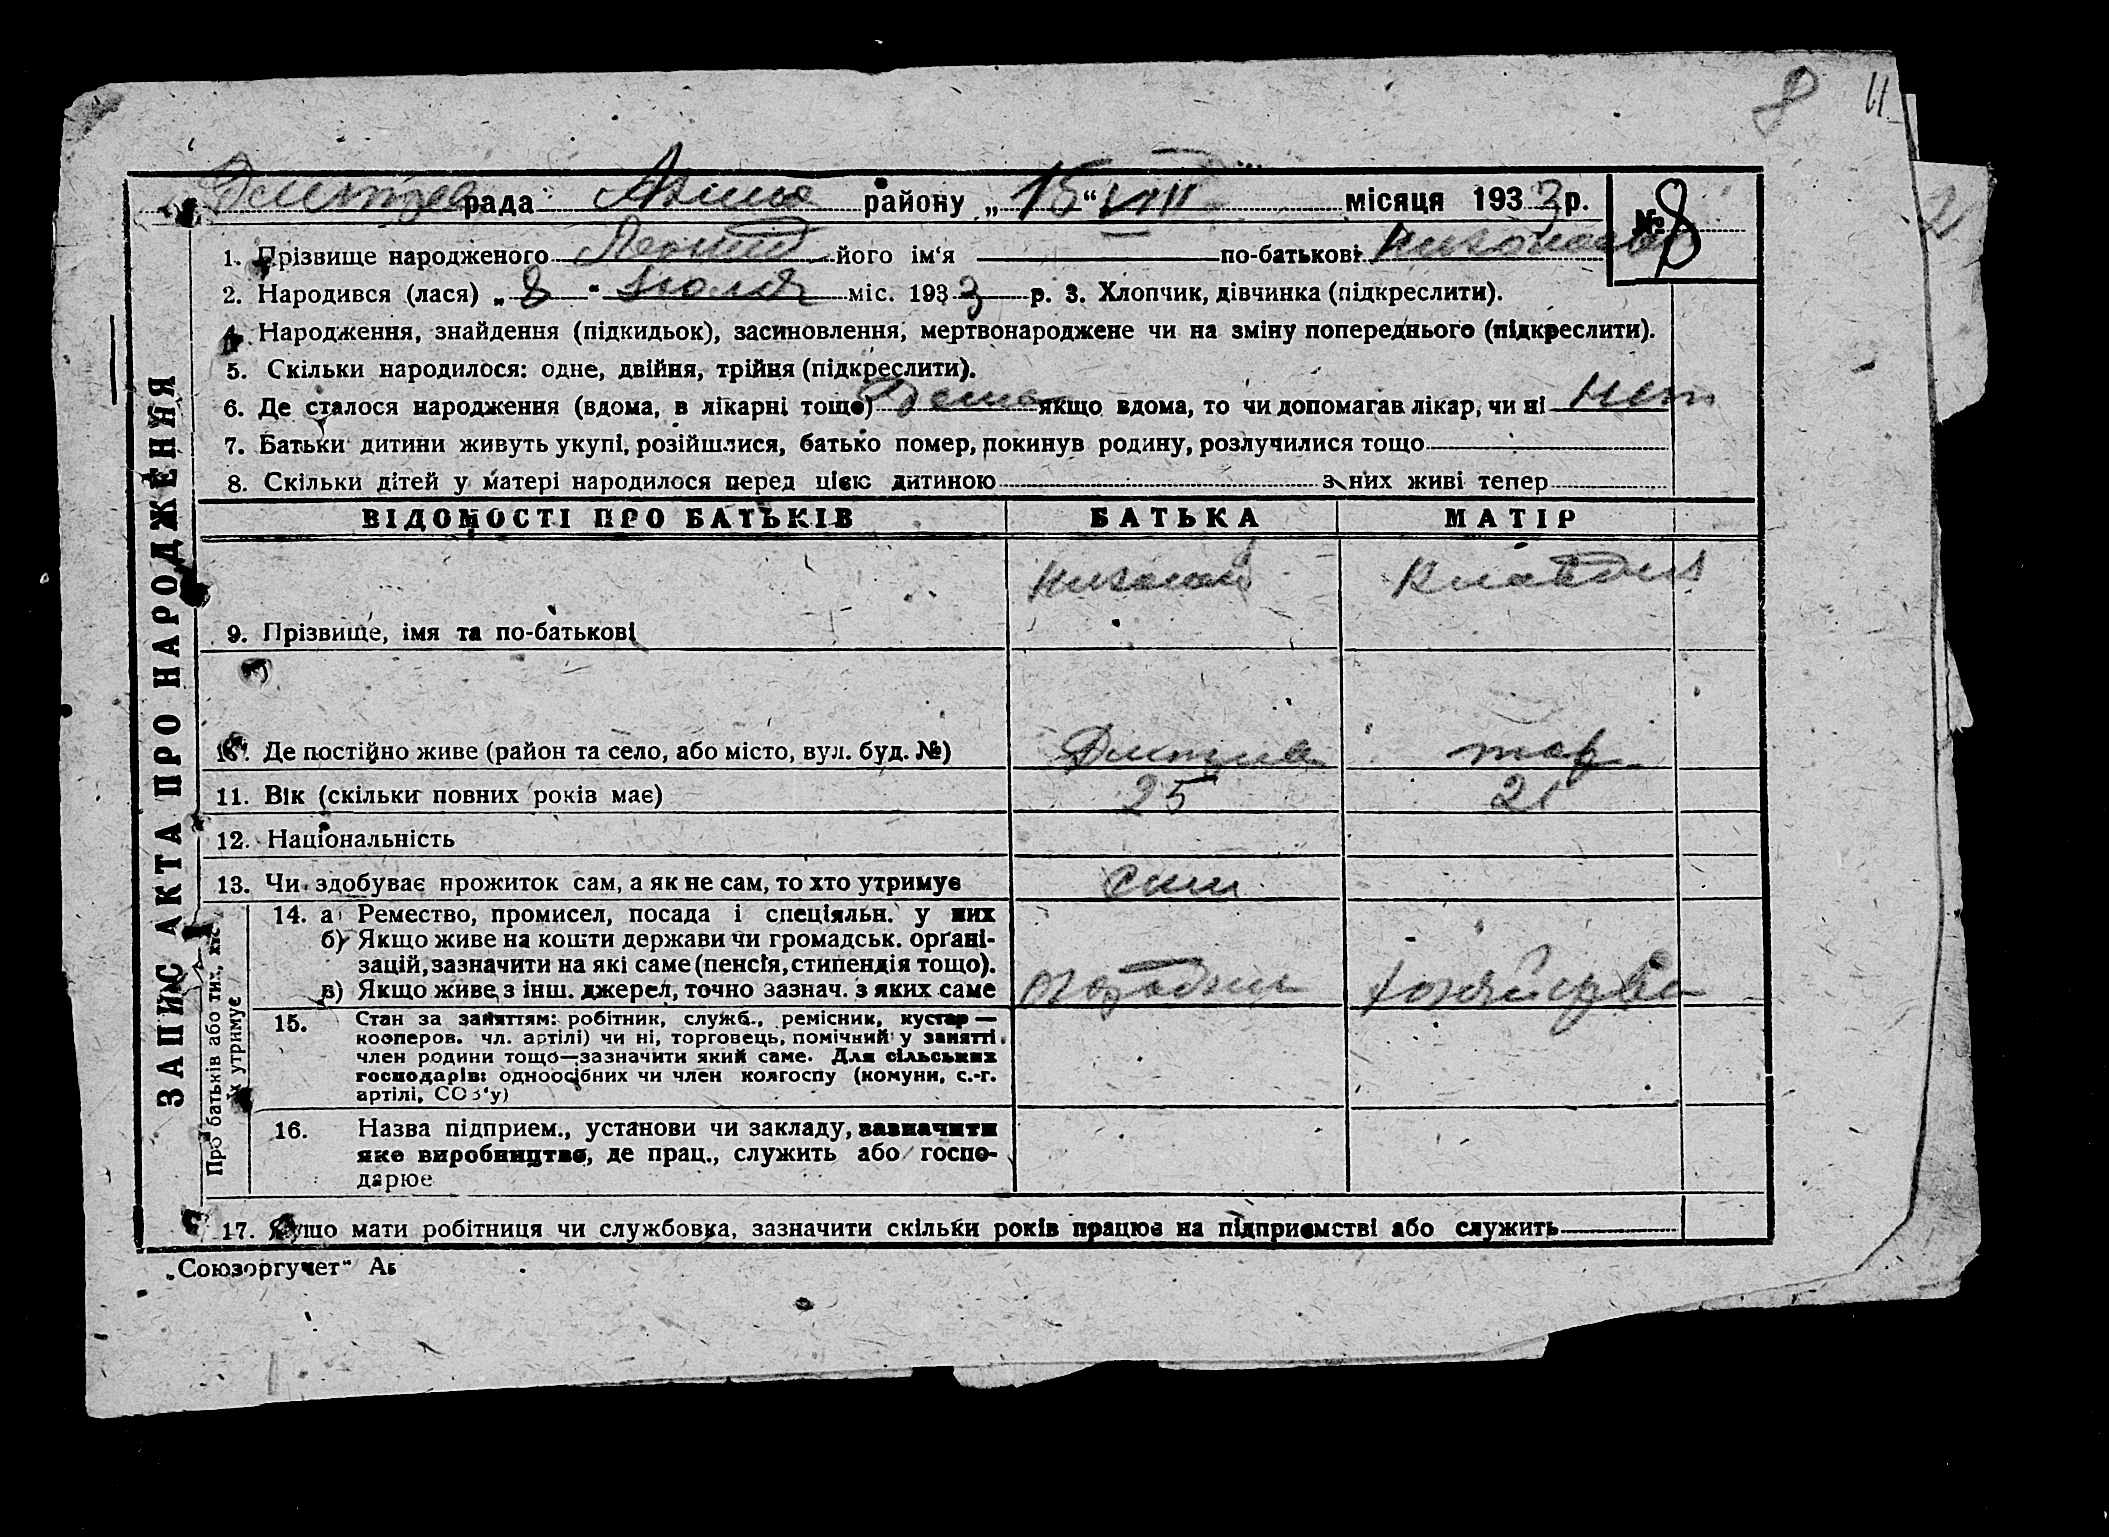 8 11
рада района „15“ VIII місяця 1933 р. № 8
1. Прізвище народженого Леонид його ім‘я по-батькові
2. Народився (лася) „8“ Июля міс. 1933 р. 3. Хлопчик, дівчинка (підкреслити).
4. Народження, знайдення (підкидьок), засиновлення, мертвонароджене чи на зміну попереднього (підкреслити).
5. Скільки народилося: одне, двійня, трійня (підкреслити).
6. Де сталося народження (вдома, в лікарні тощо) Дома якщо вдома, то чи допомагав лікар, чи ні нет
7. Батьки дитини живуть укупі, розійшлися, батько помер, покинув родину, розлучилися тощо
8. Скільки дітей у матері народилося перед цією дитиною з них живі тепер
ВІДОМОСТІ ПРО БАТЬКІВ БАТЬКА МАТІР
Николай Клавдия
9. Прізвище, імя та по-батькові
10. Де постійно живе (район та село, або місто, вул. буд. №)
11. Вік (скільки повних років має) 25 21
12. Національність
13. Чи здобуває прожиток сам, а як не сам, то хто утримує сам
14. а) Ремество, промисел, посада і спеціяльн. у них
б) Якщо живе на кошти держави чи громадськ. орґані-
зацій, зазначити на які саме (пенсія, стипендія тощо).
в) Якщо живе з інш. джерел, точно зазнач. з яких саме
15. Стан за заняттям: робітник, служб., ремісник, кустар —
кооперов. чл. артілі) чи ні, торговець, помічний у занятті
член родини тощо—зазначити який саме. Для сільських
господарів: одноосібних чи член колгоспу (комуни, с.-г.
артілі, СОЗ‘у)
16. Назва підприєм., установи чи закладу, зазначити
яке виробництво, де прац., служить або госпо-
дарює
17. Якщо мати робітниця чи службовка, зазначити скільки років працює на підприємстві або служить
„Союзоргучет“
ЗАПИС АКТА ПРО НАРОДЖЕННЯ
Про батьків або тих, хто
їх утримує